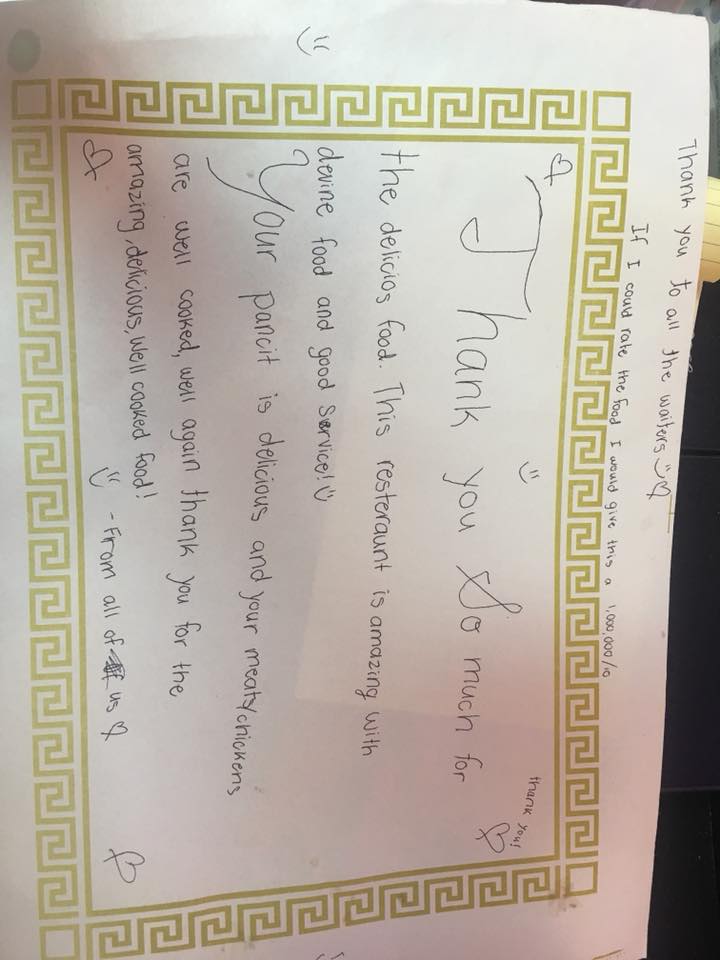 Thank you to all the waiters
If I could rate the food I would give this a 1,000,000/10
thank you!
Thank you so much for
the delicios food. This resteraunt is amazing with
devine food and good service!
Your pancit is delicious and your meats/chickens
are well cooked, well again thank you for the
amazing, delicious, well cooked food!
- From all of us